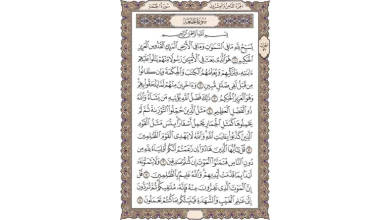 الجزء الثامن والعشرون سورة الجمعة
سورة الجمعة
بسم الله الرحمن الرحيم
يسبح لله ما في السموت وما في الأرض الملك القدوس العزيز
الحكيم ١ هو الذي بعث في الأمين رسولا منهم يتلوا عليهم
ءايته ويزكيهم ويعلمهم الكتب والحكمة وإن كانوا
من قبل لفي ضلل مبين ٢ وءاخرين منهم لما يلحقوا بهم
وهو العزيز الحكيم ٣ ذلك فضل الله يؤتيه من يشاء والله
ذو الفضل العظيم ٤ مثل الذين حملوا التورىة ثم لم
يحملوها كمثل الحمار يحمل أسفارا بئس مثل القوم
الذين كذبوا بءايت الله والله لا يهدي القوم الظلمين ٥
قل يأيها الذين هادوا إن زعمتم أنكم أولياء لله من
دون الناس فتمنوا الموت إن كنتم صدقين ٦ ولا يتمنونه
أبدا بما قدمت أيديهم والله عليم بالظلمين ٧ قل
إن الموت الذي تفرون منه فإنه ملقيكم ثم تردون
إلى علم الغيب والشهدة فينبئكم بما كنتم تعملون ٨